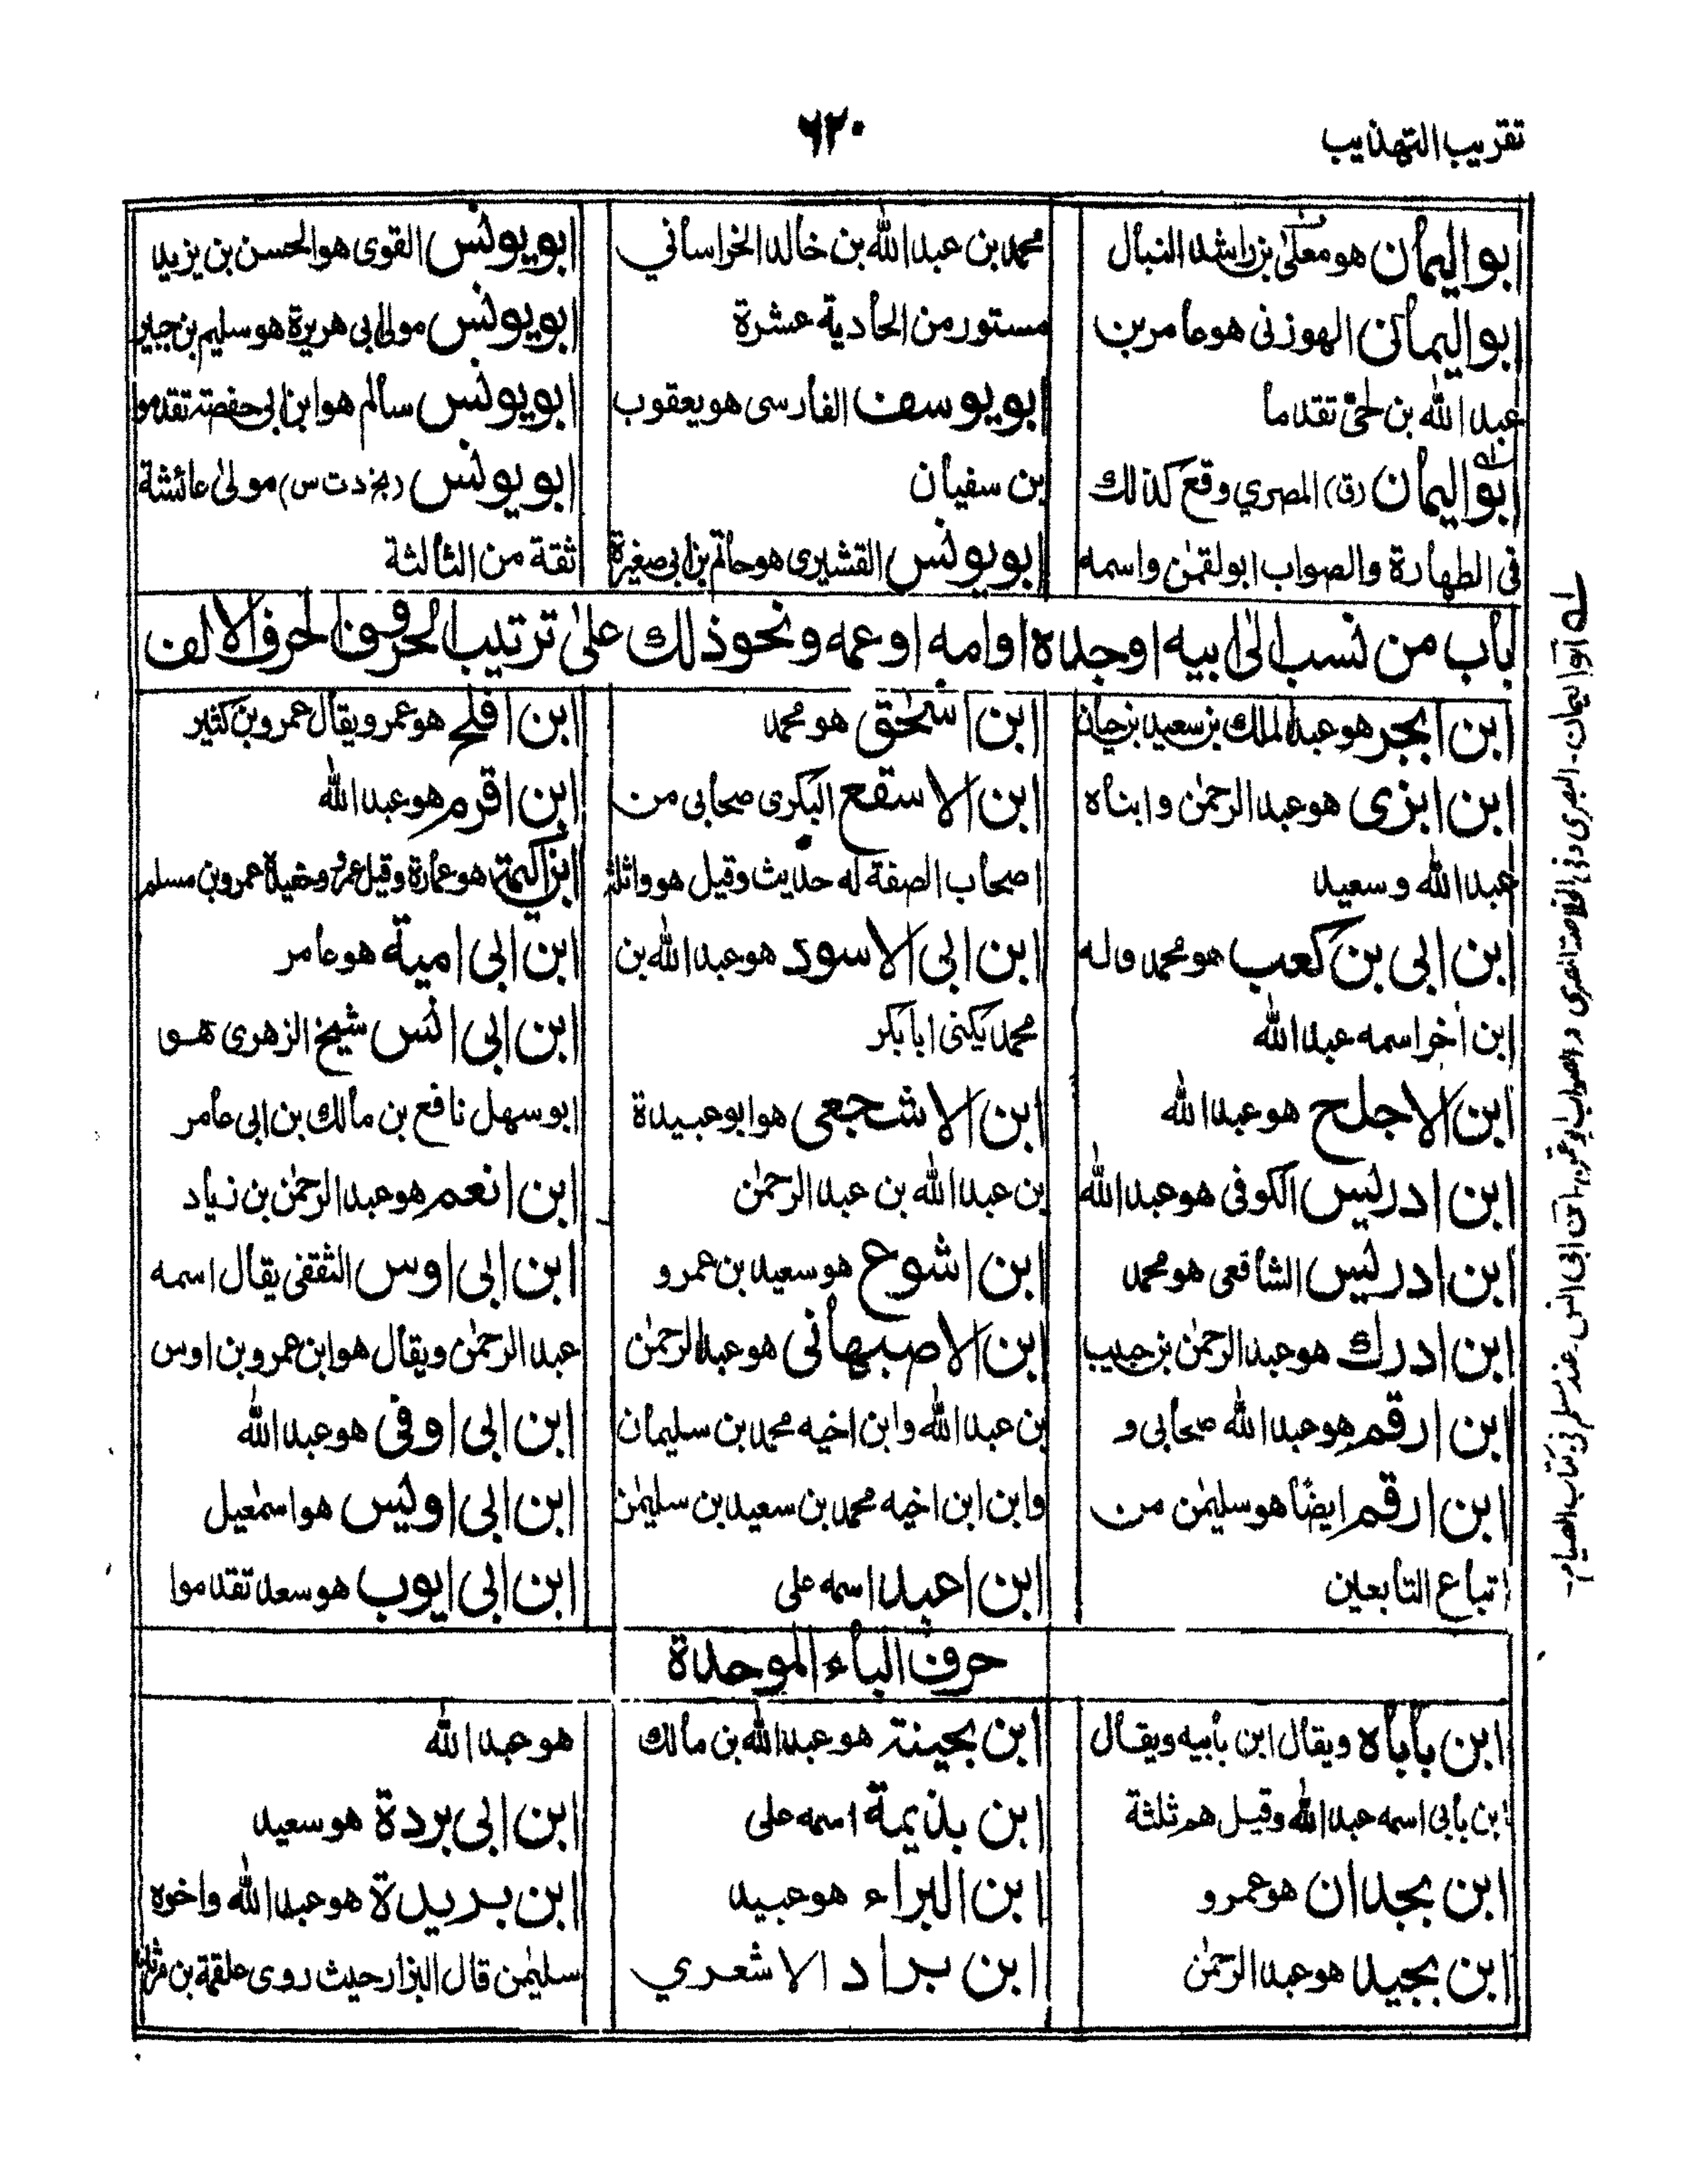 تقريب التهذيب
٦٢٠
ابو اليمان هو معلى بن راشد النبال
ابو اليمان الهوزنى هو عامر بن
عبد الله بن لحى تقدما
ابو اليمان (ق) المصري وقع كذالك
فى الطهارة والصواب ابو لقمٰن واسمه
محمد بن عبد الله بن خالد الخراساني
مستور من الحادية عشرة
ابو يوسف الفارسى هو يعقوب
بن سفيان
ابو يونس القشيرى هو حاتم بن ابى صغيرة
ابو يونس القوى هو الحسن بن يزيد
ابو يونس مولى ابى هريرة هو سليم بن جبير
ابو يونس سالم هو ابن ابى حفصة تقدموا
ابو يونس (بخ د ت س) مولى عائشة
ثقة من الثالثة
باب من نسب الى ابيه او جده او امه او عمه ونحو ذلك على ترتيب الحروف الحرف الالف
ابن ابجر هو عبد الملك بن سعيد بن حيان
ابن ابزى هو عبد الرحمٰن وابناه
عبد الله وسعيد
ابن ابى بن كعب هو محمد وله
ابن اٰخر اسمه عبد الله
ابن الاجلح هو عبد الله
ابن ادريس الكوفى هو عبد الله
ابن ادريس الشافعى هو محمد
ابن ادرك هو عبد الرحمٰن بن حبيب
ابن ارقم هو عبد الله صحابى و
ابن ارقم ايضًا هو سليمٰن من
اتباع التابعين
ابن اسحٰق هو محمد
ابن الاسقع البكرى صحابى من
اصحاب الصفة له حديث وقيل هو واثلة
ابن ابى الاسود هو عبد الله بن
محمد يكنى ابا بكر
ابن الاشجعى هو ابو عبيدة
بن عبد الله بن عبد الرحمٰن
ابن اشوع هو سعيد بن عمرو
ابن الاصبهانى هو عبد الرحمٰن
بن عبد الله وابن اخيه محمد بن سليمان
وابن ابن اخيه محمد بن سعيد بن سليمٰن
ابن اعبد اسمه على
ابن افلح هو عمر ويقال عمرو بن كثير
ابن اقرم هو عبد الله
ابن اكيمة هو عمارة وقيل عمرو حفيده عمرو بن مسلم
ابن ابى امية هو عامر
ابن ابى انس شيخ الزهرى هو
ابو سهل نافع بن مالك بن ابى عامر
ابن انعم هو عبد الرحمٰن بن زياد
ابن ابى اوس الثقفى يقال اسمه
عبد الرحمٰن ويقال هو ابن عمرو بن اوس
ابن ابى اوفى هو عبد الله
ابن ابى اويس هو اسمٰعيل
ابن ابى ايوب هو سعد تقدموا
حرف الباء الموحدة
ابن باباه ويقال ابن بابيه ويقال
ابن بابى اسمه عبد الله وقيل هم ثلثة
ابن بجدان هو عمرو
ابن بجيد هو عبد الرحمٰن
ابن بحينة هو عبد الله بن مالك
ابن بذيمة اسمه على
ابن البراء هو عبيد
ابن براد الاشعري
هو عبد الله
ابن ابى بردة هو سعيد
ابن بريدة هو عبد الله واخوه
سليمٰن قال البزار حيث روى علقمة بن مرثد
له ابو اليمان - البصرى وفى الخلاصة النصرى و الصواب ابو عمر - ابن ابى انس عند مسلم فى كتاب الصيام -